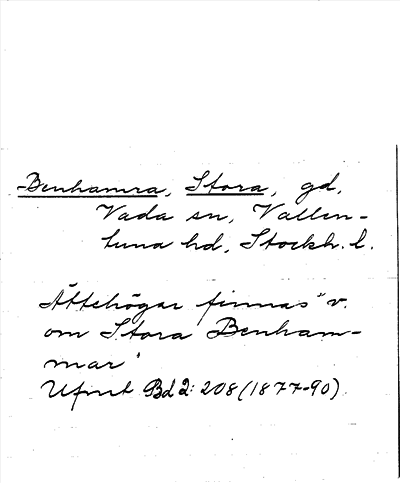 Benhamra, Stora, gd,
Vada sn, Vallen-
tuna hd, Stockh. l.
Ättehögar finnas "v.
om Stora Benham-
mar"
Ufmt Bd 2: 208 (1877-90)